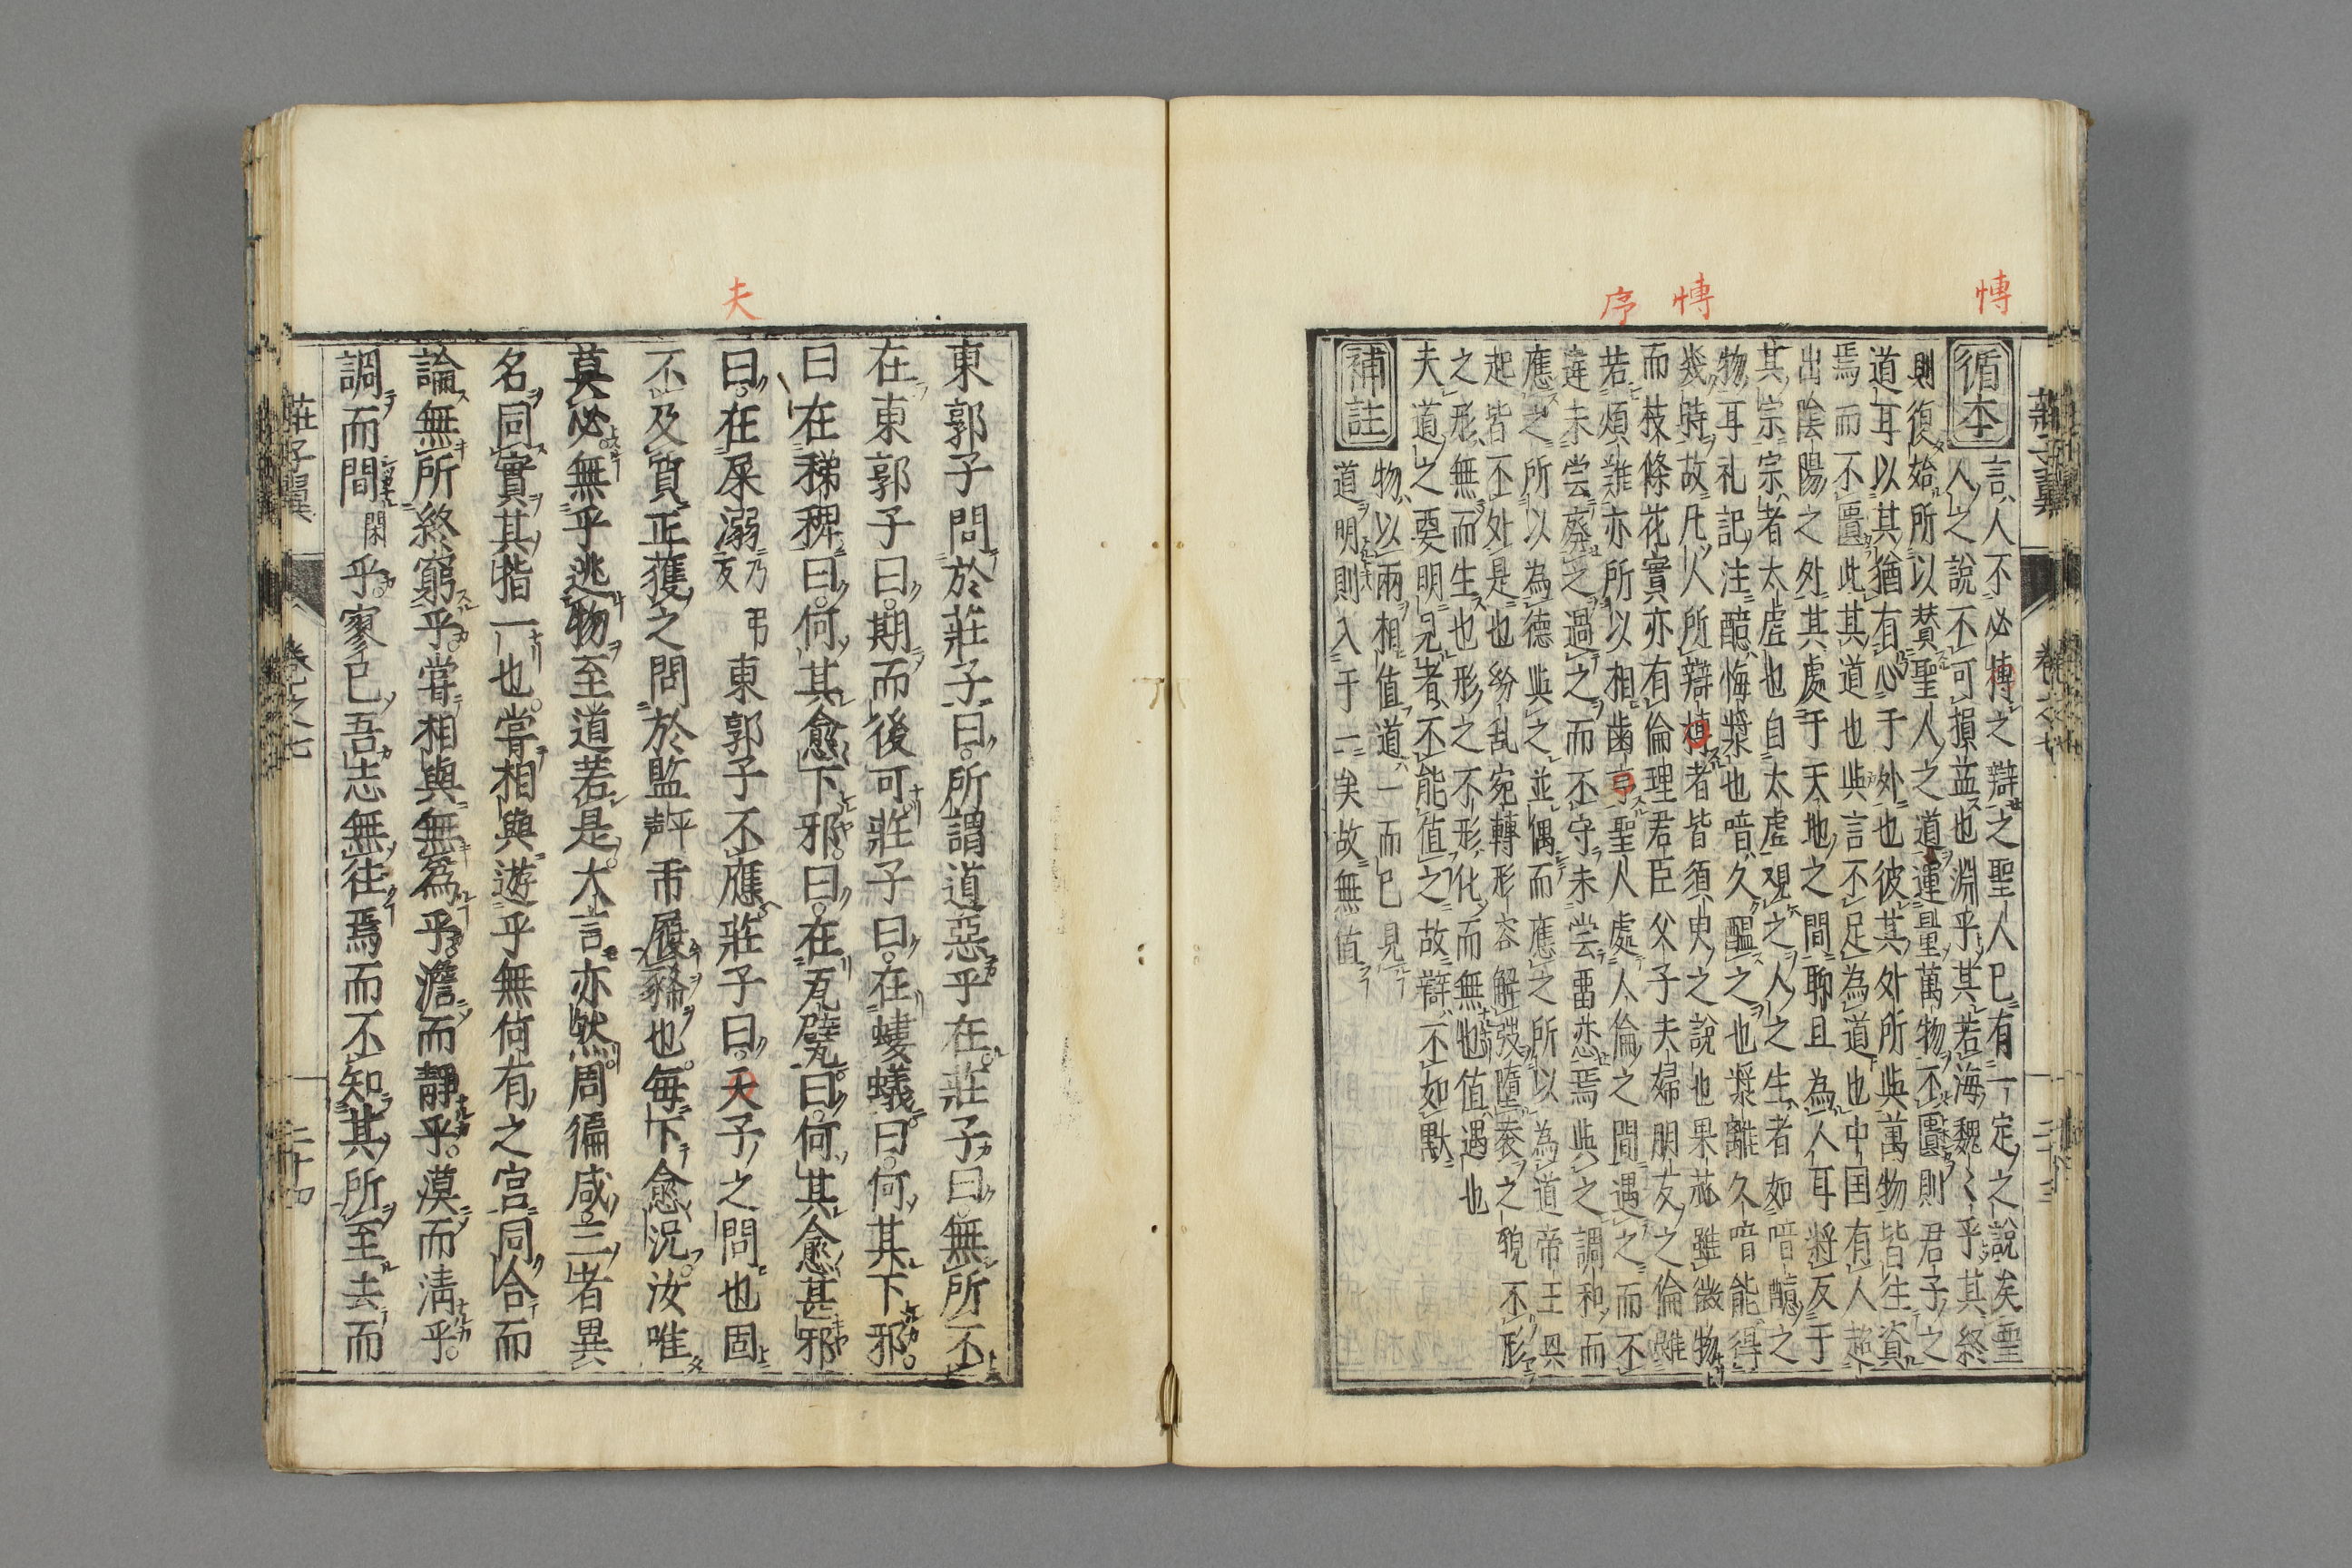 慱
慱
序
莊子翼
卷之七
二十三
循本
言人不必博之辯之聖人已有一定之說矣聖
人之說不可損益也淵乎其若海魏〻乎其終
則復始所以賛聖人之道運量萬物不匱則君子之
道耳以其猶有心于外也彼其外所與萬物皆往資
焉而不匱此其道也與言不足為道也中国有人超
出陰陽之外其處于天地之間聊且為人耳將反于
其宗宗者太虚也自太虚观之人之生者如喑醷之
物耳礼記注醷梅漿也喑久醞之也漿雖久喑能得
幾時故凡人所辯博者皆須臾之說也果蓏雖微物
而枝條花實亦有倫理君臣父子夫婦朋友之倫雖
若煩雜亦所以相齒享聖人處人倫之間遇之而不
違未尝廢之過之而不守未尝畱恋焉與之調和而
應之所以為德與之並偶而應之所以為道帝王與
起皆不外是也紛乱宛轉形容解弢墮袠之貌不形
之形無而生也形之不形化而無也值遇也
夫道之要明見者不能值之故辯不如默
補註
物以兩相值道一而已見
道明則入于二矣故無值
夫
東郭子問於莊子曰所謂道惡乎在莊子曰無所不
在東郭子曰期而後可莊子曰在螻蟻曰何其下邪
曰在稊稗曰何其愈下邪曰在瓦甓曰何其愈甚邪
曰在屎溺乃弔反東郭子不應莊子曰天子之問也固
不及質正獲之問於監平声市履豨也每下愈況汝唯
莫必無乎逃物至道若是大言亦然周徧咸三者異
名同實其指一也嘗相與遊乎無何有之宮同合而
論無所終窮乎嘗相與無為乎澹而靜乎漠而清乎
調而間閑乎寥已吾志無往焉而不知其所至去而
莊子翼
卷之七
二十四